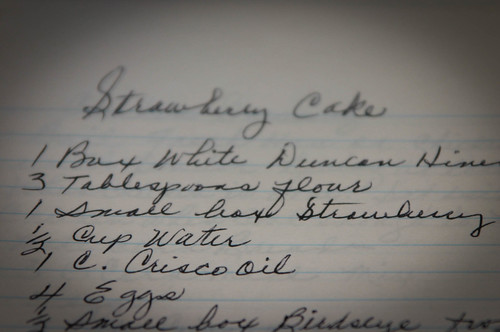 Strawberry Cake
1 Box White Duncan Hines
3 Tablespoons flour
1 Small box Strawberry
1/2 Cup Water
1 C. Crisco Oil
4 Eggs
1/2 Small box Birdseye